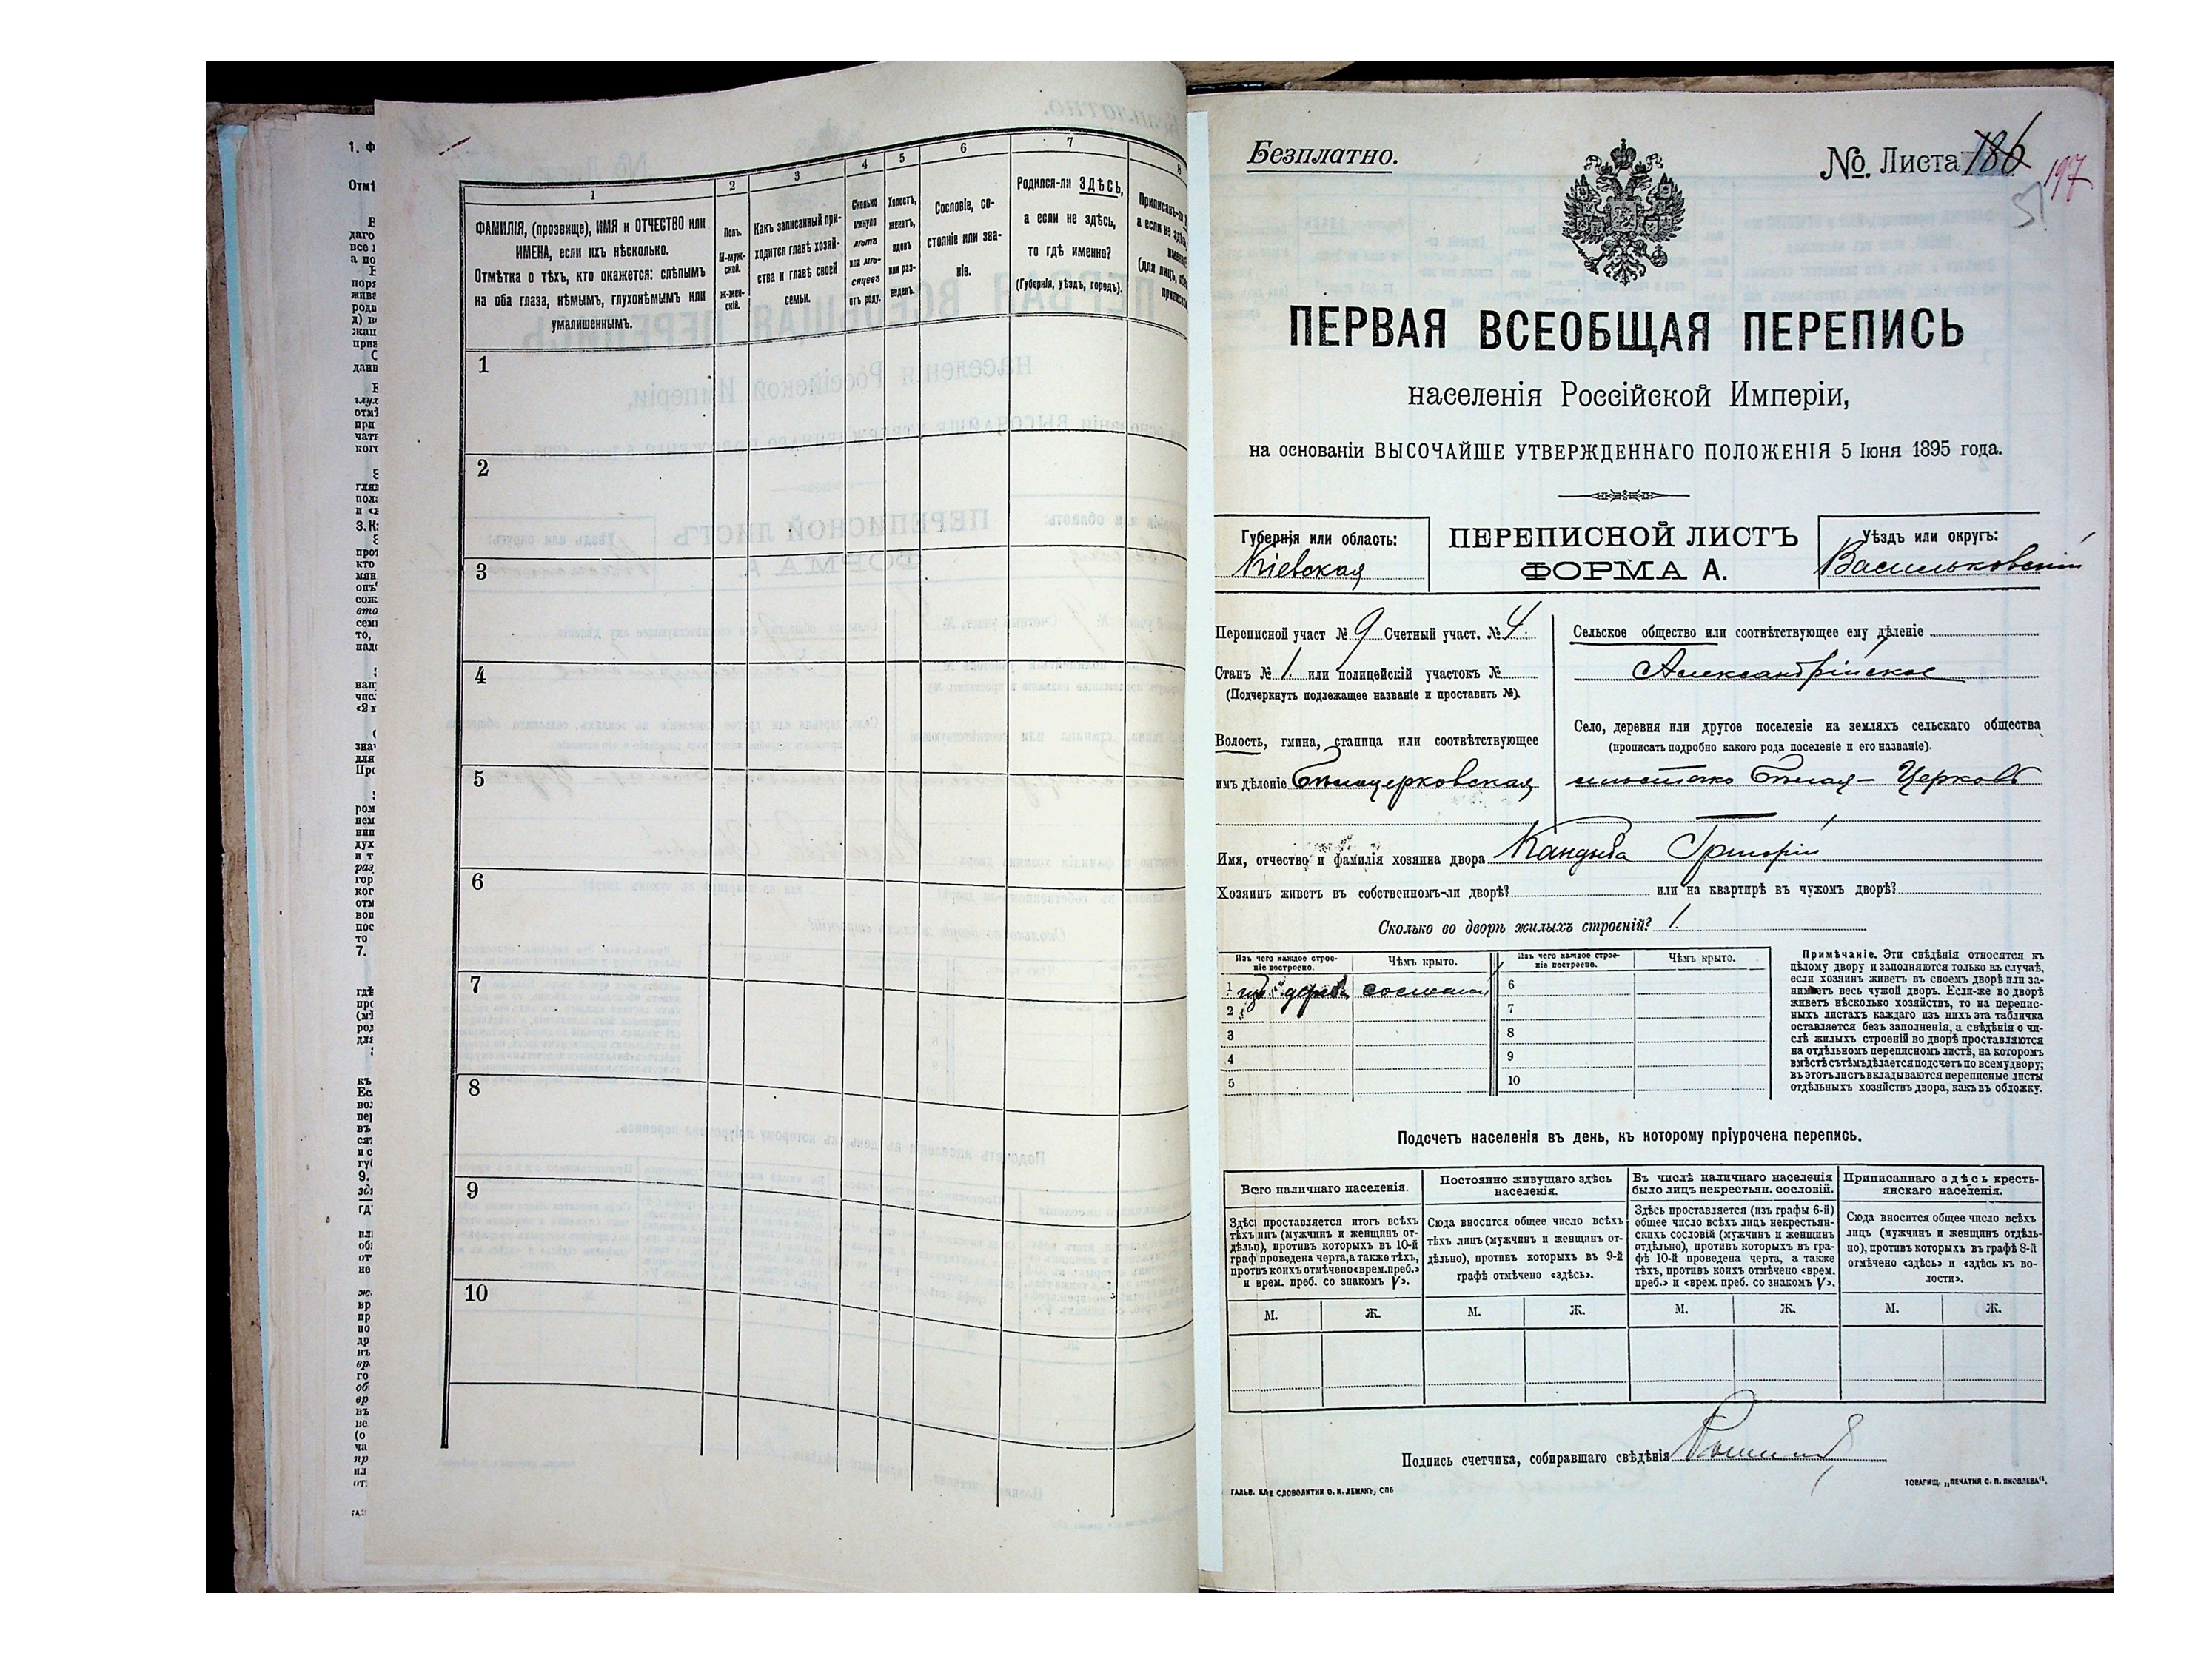 1
2
3
4
5
6
7
8
ФАМИЛІЯ, (прозвище), ИМЯ и ОТЧЕСТВО или
ИМЕНА, если ихъ нѣсколько.
Отмѣтка о тѣхъ, кто окажется: слѣпымъ
на оба глаза, нѣмымъ, глухонѣмымъ или
умалишеннымъ.
Полъ.
М-муж-
ской.
Ж-жен-
скій.
Какъ записанный при-
ходится главѣ хозяй-
ства и главѣ своей
семьи.
Сколько
минуло
лѣтъ
или мѣ-
сяцевъ
отъ роду.
Холостъ,
женатъ,
вдовъ
или раз-
веденъ.
Сословіе, со-
стояніе или зва-
ніе.
Родился-ли ЗДѢСЬ,
а если не здѣсь,
то гдѣ именно?
(Губернія, уѣздъ, городъ).
1
2
3
4
5
6
7
8
9
10
Безплатно.
№ Листа 186
197
51
ПЕРВАЯ ВСЕОБЩАЯ ПЕРЕПИСЬ
населенія Россійской Имперіи,
на основаніи ВЫСОЧАЙШЕ УТВЕРЖДЕННАГО ПОЛОЖЕНІЯ 5 Іюня 1895 года.
Губернія или область:
Кіевская
ПЕРЕПИСНОЙ ЛИСТЪ
ФОРМА А.
Уѣздъ или округъ:
Васильковскій
Переписной участ № 9 Счетный участ. № 4.
Станъ № 1. или полицейскій участокъ №
(Подчеркнуть подлежащее названіе и проставить №).
Волость, гмина, станица или соотвѣтствующее
имъ дѣленіе Бѣлоцерковская
Сельское общество или соотвѣтствующее ему дѣленіе
Александрійское
Село, деревня или другое поселеніе на земляхъ сельскаго общества
(прописать подробно какого рода поселеніе и его названіе).
мѣстечко Бѣлая-Церковь
Имя, отчество и фамилія хозяина двора Кандыба Григорій
Хозяинъ живетъ въ собственномъ-ли дворѣ? или на квартирѣ въ чужомъ дворѣ?
Сколько во дворѣ жилыхъ строеній? 1.
Изъ чего каждое строе-
ніе построено.
Чѣмъ крыто.
Изъ чего каждое строе-
ніе построено.
Чѣмъ крыто.
1 изъ дерева соломою
2
3
4
5
6
7
8
9
10
Примѣчаніе. Эти свѣдѣнія относятся къ
цѣлому двору и заполняются только въ случаѣ,
если хозяинъ живетъ въ своемъ дворѣ или за-
нимаетъ весь чужой дворъ. Если-же во дворѣ
живетъ нѣсколько хозяйствъ, то на перепис-
ныхъ листахъ каждаго изъ нихъ эта табличка
оставляется безъ заполненія, а свѣдѣнія о чи-
слѣ жилыхъ строеній во дворѣ проставляются
на отдѣльномъ переписномъ листѣ, на которомъ
вмѣстѣ съ тѣмъ дѣлается подсчетъ по всему двору;
въ этотъ листъ вкладываются переписные листы
отдѣльныхъ хозяйствъ двора, какъ въ обложку.
Подсчетъ населенія въ день, къ которому пріурочена перепись.
Всего наличнаго населенія.
Здѣсь проставляется итогъ всѣхъ
тѣхъ лицъ (мужчинъ и женщинъ от-
дѣльно), противъ которыхъ въ 10-й
графѣ проведена черта, а также тѣхъ,
противъ коихъ отмѣчено «врем. преб.»
и врем. преб. со знакомъ V».
Постоянно живущаго здѣсь
населенія.
Сюда вносится общее число всѣхъ
тѣхъ лицъ (мужчинъ и женщинъ от-
дѣльно), противъ которыхъ въ 9-й
графѣ отмѣчено «здѣсь».
Въ числѣ наличнаго населенія
было лицъ некрестьян. сословій.
Здѣсь проставляется (изъ графы 6-й)
общее число всѣхъ лицъ некрестьян-
скихъ сословій (мужчинъ и женщинъ
отдѣльно), противъ которыхъ въ гра-
фѣ 10-й проведена черта, а также
тѣхъ, противъ коихъ отмѣчено «врем.
преб.» и «врем. преб. со знакомъ V».
Приписаннаго здѣсь кресть-
янскаго населенія.
Сюда вносится общее число всѣхъ
лицъ (мужчинъ и женщинъ отдѣль-
но), противъ которыхъ въ графѣ 8-й
отмѣчено «здѣсь» и «здѣсь къ во-
лости».
М. Ж. М. Ж. М. Ж. М. Ж.
Подпись счетчика, собиравшаго свѣдѣнія
ГАЛЬВ. КЛИШЕ СЛОВОЛИТНИ О. И. ЛЕМАНЪ, СПБ
ТОВАРИЩ. „ПЕЧАТНЯ С. П. ЯКОВЛЕВА".